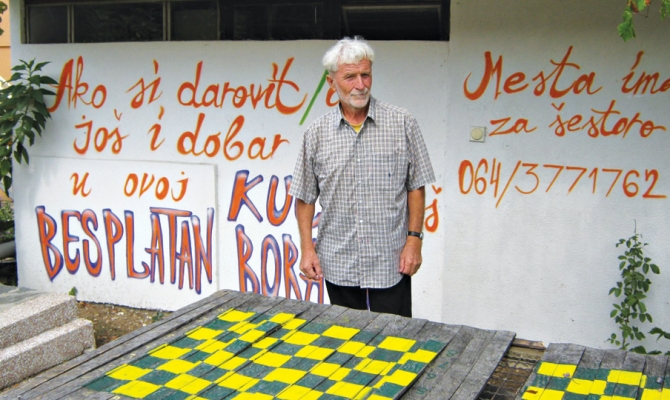 Ako si darovit /
još i dobar
u ovoj
BESPLATAN
BORA
Mesta ima
za šestoro
064/3771762